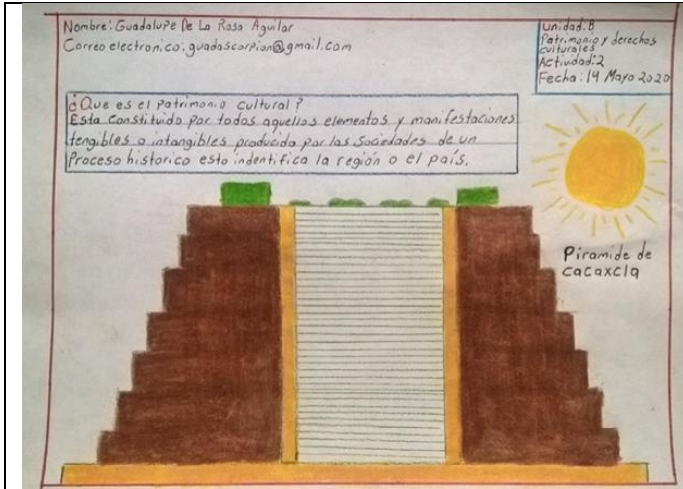 Nombre: Guadalupe De La Rosa Aguilar
Correo electronico: guadascorpion@gmail.com
Unidad: B
Patrimonio y derechos
culturales
Actividad: 2
Fecha: 14 Mayo 2020
¿Que es el patrimonio cultural?
Esta constituido por todos aquellos elementos y manifestaciones
tengibles o intangibles producida por las sociedades de un
Proceso historico esto indentifica la región o el país.
Piramide de
cacaxcla